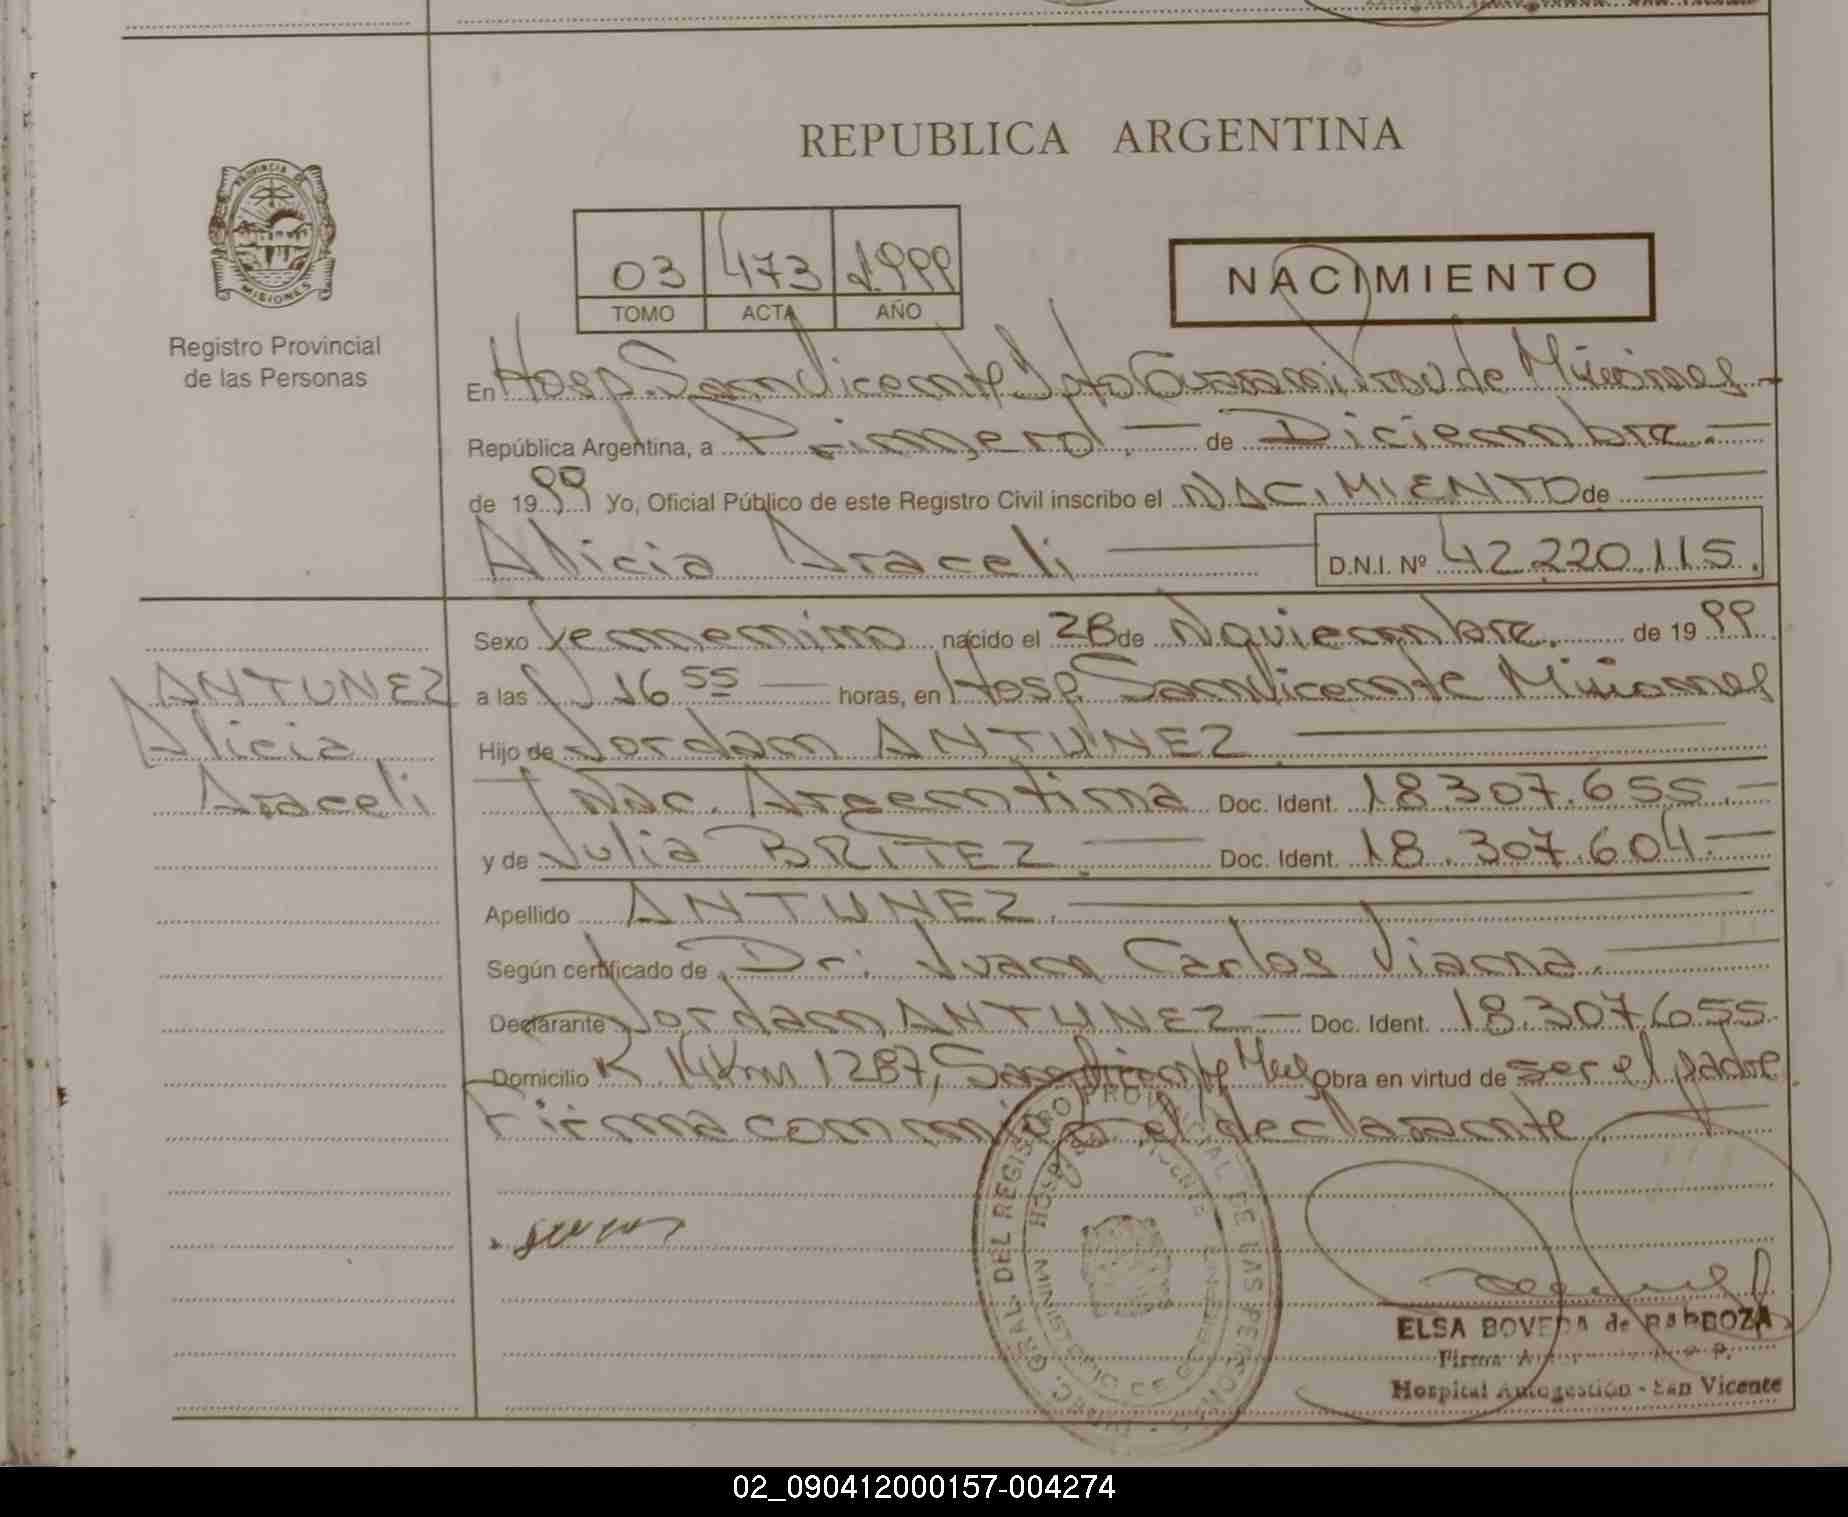 REPUBLICA ARGENTINA
PROVINCIA DE
MISIONES
Registro Provincial
de las Personas
03 473 1.999
TOMO ACTA AÑO
NACIMIENTO
En Hosp. San Vicente Dpto Guaraní Prov de Misiones
República Argentina, a Primero de Diciembre.
de 1999 Yo, Oficial Público de este Registro Civil inscribo el NACIMIENTO de
Alicia Araceli D.N.I. Nº 42.220.115.
Sexo femenino nacido el 28 de Noviembre. de 1999.
ANTUNEZ
Alicia
Araceli
a las 16 55 horas, en Hosp. San Vicente Misiones
Hijo de Jordan ANTUNEZ
Nac. Argentina Doc. Ident. 18.307.655.
y de Julia BRITEZ Doc. Ident. 18.307.604.
Apellido ANTUNEZ.
Según certificado de Dr: Juan Carlos Viana.
Declarante Jordan ANTUNEZ Doc. Ident. 18.307.655
Domicilio R 14 Km 1287, San Vicente Mnes Obra en virtud de ser el padre
Firma conmigo el declarante
DIREC. GRAL. DEL REGISTRO PROVINCIAL DE LAS PERSONAS
HOSP. SAN VICENTE
MINISTERIO DE GOBIERNO
ELSA BOVEDA de BARBOZA
Firma
Hospital Autogestión - San Vicente
02_090412000157-004274